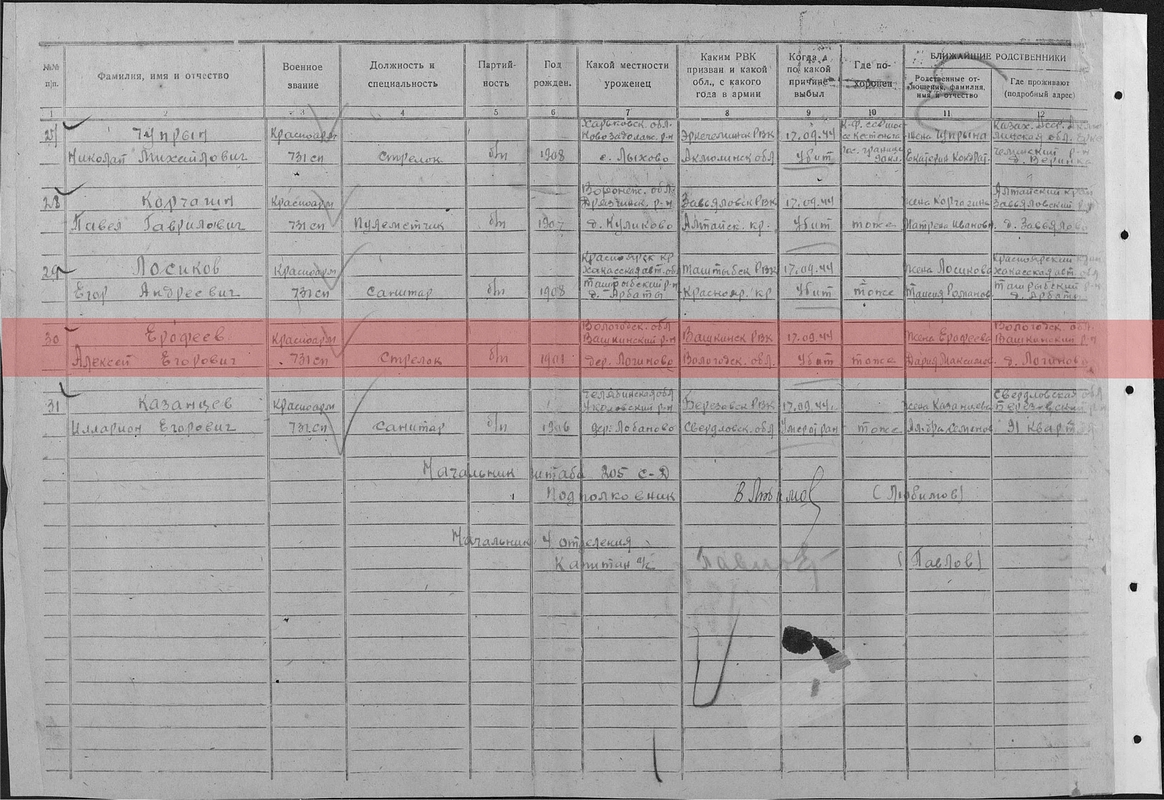 №№ п/п. Фамилия, имя и отчество Военное звание Должность и специальность Партийность Год рожден. Какой местности уроженец Каким РВК призван и какой обл., с какого года в армии Когда и по какой причине выбыл Где похоронен БЛИЖАЙШИЕ РОДСТВЕННИКИ
Родственные отношения, фамилия, имя и отчество Где проживают (подробный адрес)
1 2 3 4 5 6 7 8 9 10 11 12
Харьковск. обл.
Чупрын Красноарм РВК 17.09.44 жена Чупрына
Николай Михайлович 731 сп Стрелок б/п 1908 с. Лыхово Акмолинск обл Убит Екатерина
28 Воронеж. обл. Алтайский край
Корчагин Красноарм р-н Завьяловск РВК 17.09.44 жена Корчагина Завьяловский р-н
Павел Гаврилович 731 сп Пулеметчик б/п д. Куликово Алтайск. кр. Убит тоже Матрена Ивановн д. Завьялово
29 Красноярск кр Красноярский край
Лосиков Красноарм Хакасская авт. обл Таштыбск РВК 17.09.44 жена Лосикова Хакасская авт. обл
Егор Андреевич 731 сп Санитар б/п 1908 д. Арбаты Краснояр. кр Убит тоже Таисия Романов д. Арбаты
30 Вологодск. обл Вологодск. обл
Ерофеев Красноарм Вашкинский р-н Вашкинск РВК 17.09.44 Жена Ерофеева Вашкинский р-н
Алексей Егорович 731 сп Стрелок б/п 1901 дер. Логиново Вологодск. обл. Убит тоже Дария Максимов д. Логиново
31 Челябинская обл Свердловская обл
Казанцев Красноарм р-н Березовск РВК 17.09.44г. жена Казанцева Березовский
Илларион Егорович 731 сп Санитар б/п 1906 дер. Лобаново Свердловск. обл Умер от ран тоже 31 Квартал
Начальник штаба 205 С-Д
Подполковник (Любимов)
Начальник 4 отделения
Капитан а/с Павлов (Павлов)